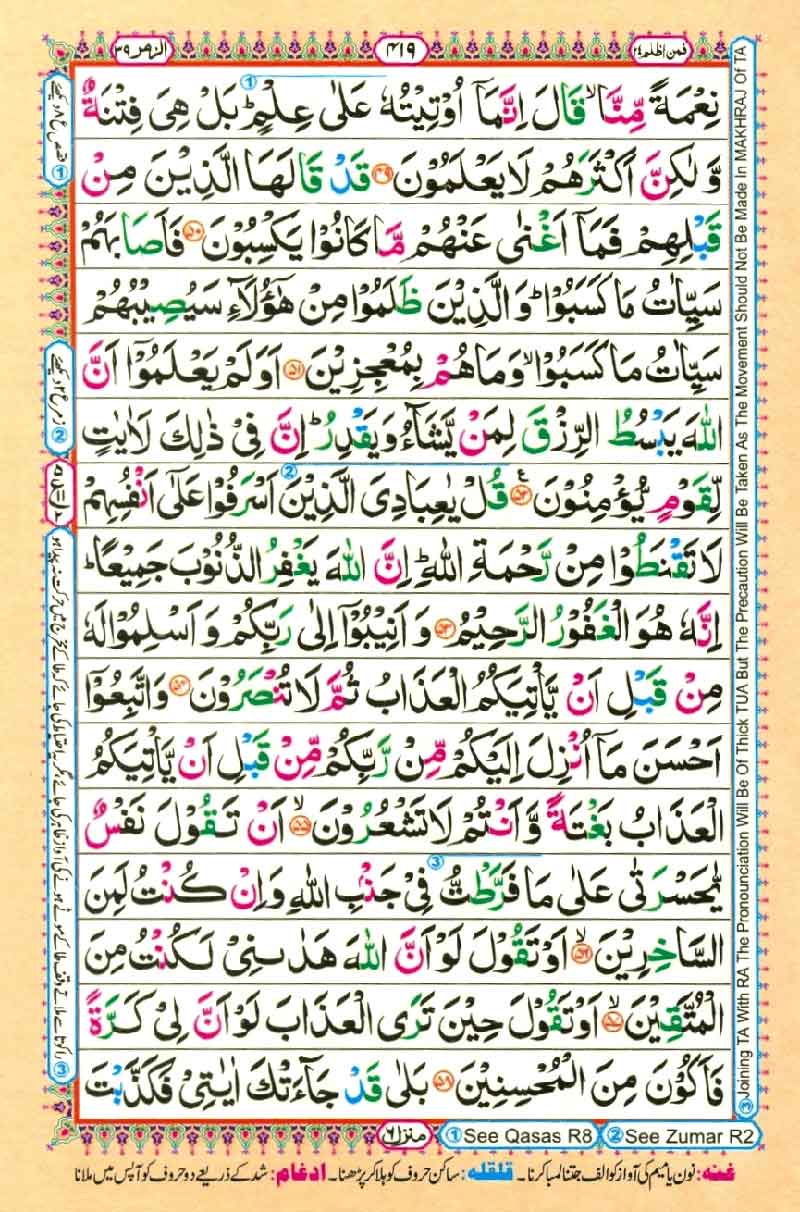 فمن اظلم ٢٤
٤١٩
الزمر ٣٩
نِعْمَةً مِّنَّا ۙ قَالَ اِنَّمَاۤ اُوْتِیْتُهٗ عَلٰی عِلْمٍ ؕ بَلْ هِیَ فِتْنَةٌ
وَّ لٰكِنَّ اَكْثَرَهُمْ لَا یَعْلَمُوْنَ ﴿۴۹﴾ قَدْ قَالَهَا الَّذِیْنَ مِنْ
قَبْلِهِمْ فَمَاۤ اَغْنٰی عَنْهُمْ مَّا كَانُوْا یَكْسِبُوْنَ ﴿۵۰﴾ فَاَصَابَهُمْ
سَیِّاٰتُ مَا كَسَبُوْا ؕ وَ الَّذِیْنَ ظَلَمُوْا مِنْ هٰۤؤُلَآءِ سَیُصِیْبُهُمْ
سَیِّاٰتُ مَا كَسَبُوْا ۙ وَ مَا هُمْ بِمُعْجِزِیْنَ ﴿۵۱﴾ اَوَ لَمْ یَعْلَمُوْۤا اَنَّ
اللّٰهَ یَبْسُطُ الرِّزْقَ لِمَنْ یَّشَآءُ وَ یَقْدِرُ ؕ اِنَّ فِیْ ذٰلِكَ لَاٰیٰتٍ
لِّقَوْمٍ یُّؤْمِنُوْنَ ﴿۵۲﴾ قُلْ یٰعِبَادِیَ الَّذِیْنَ اَسْرَفُوْا عَلٰۤی اَنْفُسِهِمْ
لَا تَقْنَطُوْا مِنْ رَّحْمَةِ اللّٰهِ ؕ اِنَّ اللّٰهَ یَغْفِرُ الذُّنُوْبَ جَمِیْعًا ؕ
اِنَّهٗ هُوَ الْغَفُوْرُ الرَّحِیْمُ ﴿۵۳﴾ وَ اَنِیْبُوْۤا اِلٰی رَبِّكُمْ وَ اَسْلِمُوْا لَهٗ
مِنْ قَبْلِ اَنْ یَّاْتِیَكُمُ الْعَذَابُ ثُمَّ لَا تُنْصَرُوْنَ ﴿۵۴﴾ وَ اتَّبِعُوْۤا
اَحْسَنَ مَاۤ اُنْزِلَ اِلَیْكُمْ مِّنْ رَّبِّكُمْ مِّنْ قَبْلِ اَنْ یَّاْتِیَكُمُ
الْعَذَابُ بَغْتَةً وَّ اَنْتُمْ لَا تَشْعُرُوْنَ ﴿۵۵﴾ اَنْ تَقُوْلَ نَفْسٌ
یّٰحَسْرَتٰی عَلٰی مَا فَرَّطْتُّ فِیْ جَنْۢبِ اللّٰهِ وَ اِنْ كُنْتُ لَمِنَ
السَّاخِرِیْنَ ﴿۵۶﴾ اَوْ تَقُوْلَ لَوْ اَنَّ اللّٰهَ هَدٰىنِیْ لَكُنْتُ مِنَ
الْمُتَّقِیْنَ ﴿۵۷﴾ اَوْ تَقُوْلَ حِیْنَ تَرَی الْعَذَابَ لَوْ اَنَّ لِیْ كَرَّةً
فَاَكُوْنَ مِنَ الْمُحْسِنِیْنَ ﴿۵۸﴾ بَلٰی قَدْ جَآءَتْكَ اٰیٰتِیْ فَكَذَّبْتَ
③Joining TA With RA The Pronounciation Will Be Of Thick TUA But The Precaution Will Be Taken As The Movement Should Not Be Made In MAKHRAJ Of TA
منزل ٦
① See Qasas R8
② See Zumar R2
غنہ: نون یا میم کی آواز کو الف جتنا لمبا کرنا۔ قلقلہ: ساکن حروف کو ہلا کر پڑھنا۔ ادغام: شد کے ذریعے دو حروف کو آپس میں ملانا